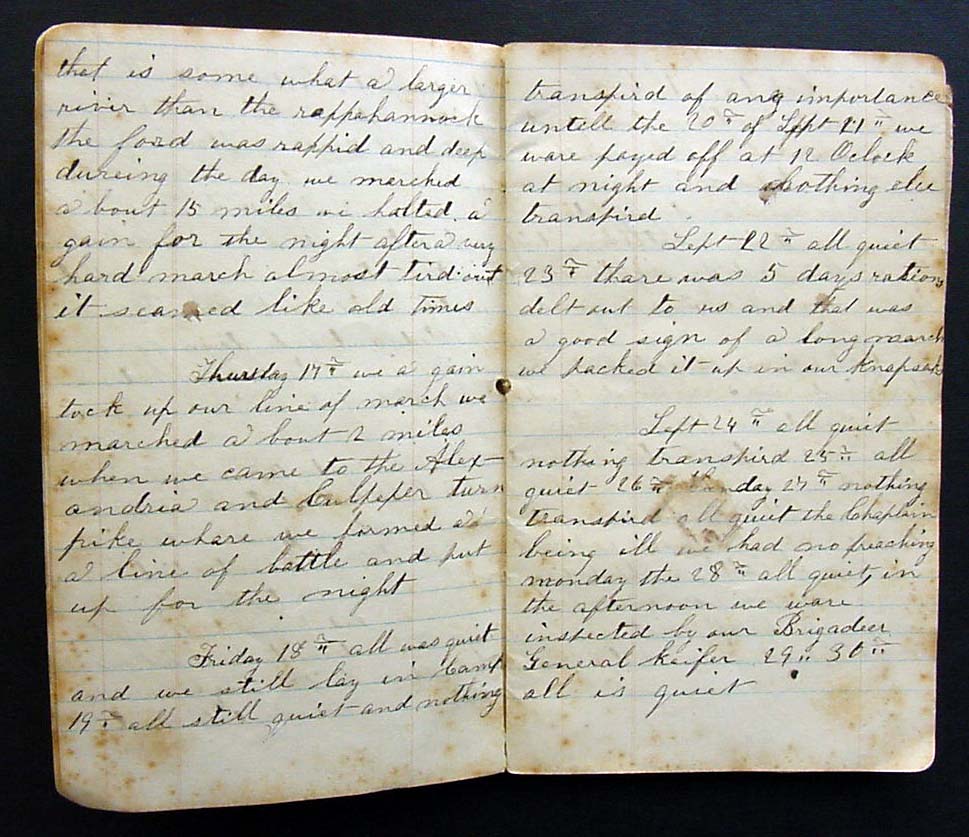 that is some what a larger
river than the rappahannock
the ford was rappid and deep
dureing the day we marched
a bout 15 miles we halted a
gain for the night after a very
hard march almost tird out
it seamed like old times
Thursday 17th we a gain
tock up our line of march we
marched a bout 2 miles
when we came to the Alex-
andria and Culpeper turn
pike whare we formed
a line of battle and put
up for the night
Friday 18th all was quiet
and we still lay in Camp
19th all still quiet and nothing
transpird of any importance
untell the 20th of Sept 21th we
ware payed off at 12 Oclock
at night and nothing else
transpird
Sept 22th all quiet
23th thare was 5 days rations
delt out to us and that was
a good sign of a long march
we packed it up in our Knapsacks
Sept 24th all quiet
nothing transpird 25th all
quiet 26th Sunday 27th nothing
transpird all quiet the Chaplain
being ill we had no preaching
monday the 28th all quiet, in
the afternoon we ware
inspected by our Brigadeer
General Keifer 29th 30th
all is quiet